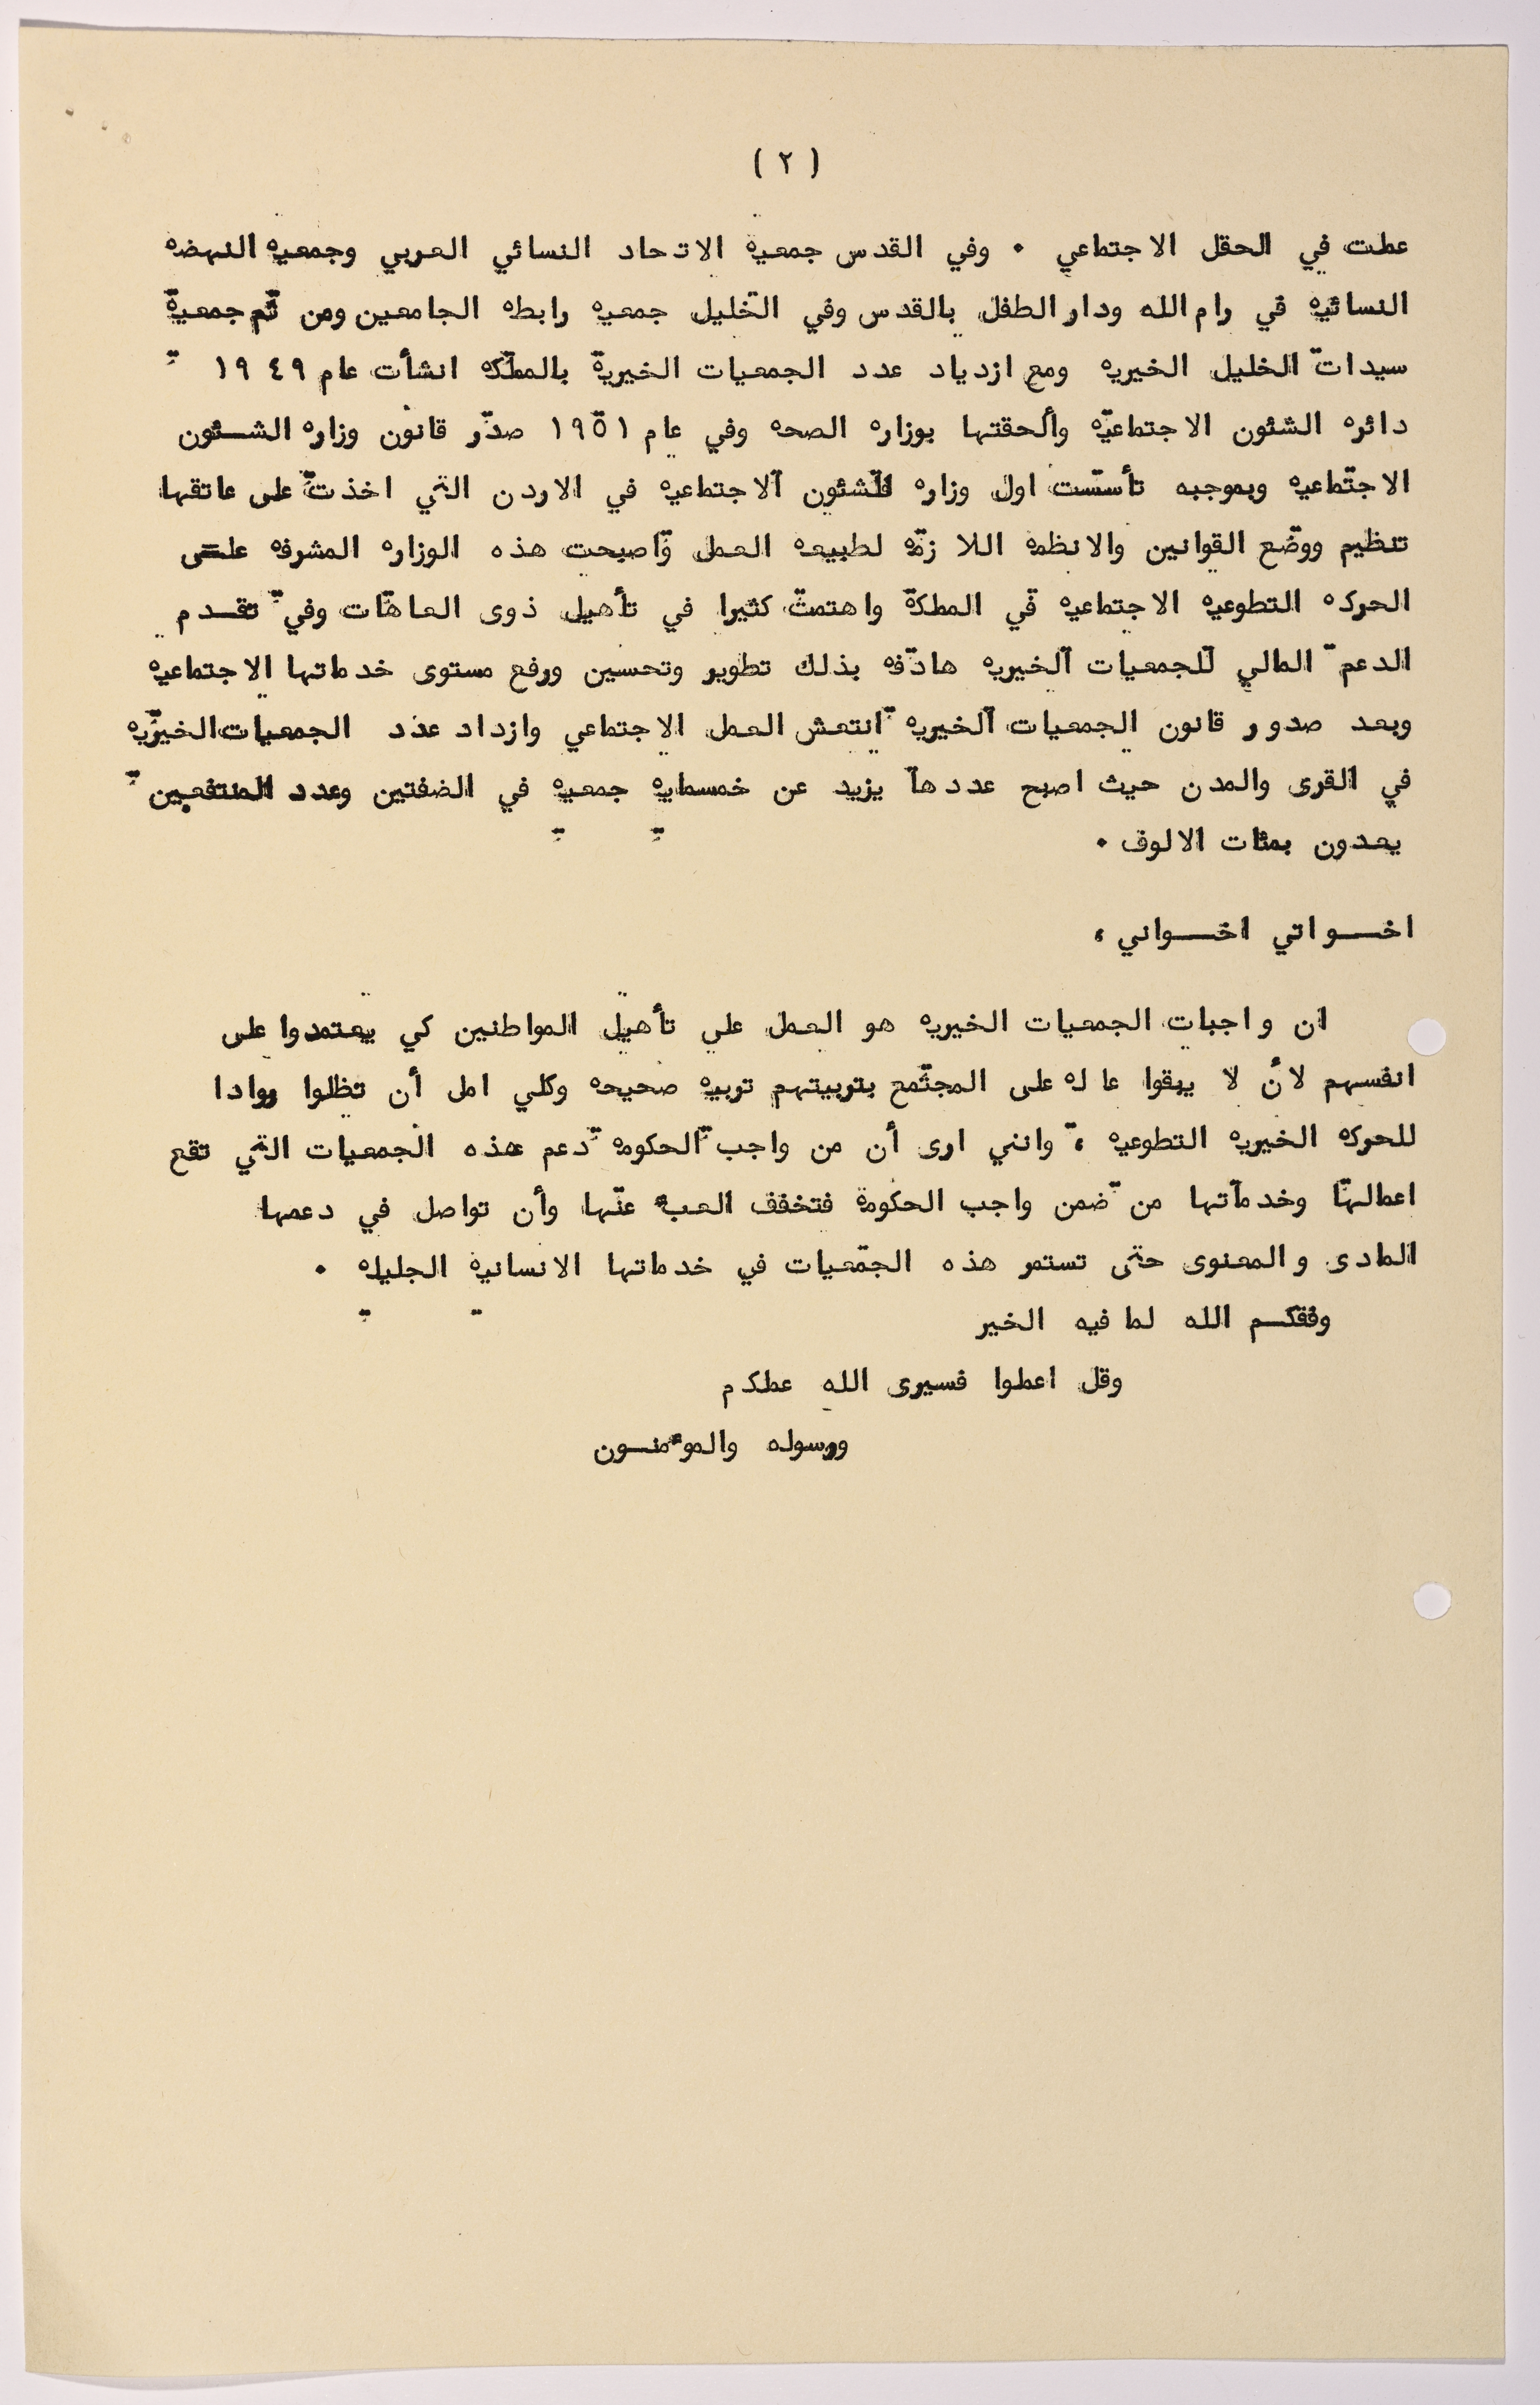 ( ٢ )
عملت في الحقل الاجتماعي ٠ وفي القدس جمعية الاتحاد النسائي العربي وجمعية النهضه
النسائيه في رام الله ودار الطفل بالقدس وفي الخليل جمعيه رابطه الجامعين ومن ثم جمعية
سيدات الخليل الخيريه ومع ازدياد عدد الجمعيات الخيرية بالمملكه انشأت عام ١٩٤٩
دائره الشئون الاجتماعيه وألحقتها بوزاره الصحه وفي عام ١٩٥١ صدر قانون وزاره الشــئون
الاجتماعيه وبموجبه تأسست اول وزاره للشئون الاجتماعيه في الاردن التي اخذت على عاتقها
تنظيم ووضع القوانين والانظمه اللازمه لطبيعه العمل واصبحت هذه الوزاره المشرفه علــى
الحركه التطوعيه الاجتماعيه في المملكة واهتمت كثيرا في تأهيل ذوى العاهات وفي تقــدم
الدعم المالي للجمعيات الخيريه هادفه بذلك تطوير وتحسين ورفع مستوى خدماتها الاجتماعيه
وبعد صدور قانون الجمعيات الخيريه انتعش العمل الاجتماعي وازداد عدد الجمعيات الخيريه
في القرى والمدن حيث اصبح عددها يزيد عن خمسمايه جمعيه في الضفتين وعدد المنتفعين
يعدون بمئات الالوف ٠
اخـــواتي اخـــواني ،
ان واجبات الجمعيات الخيريه هو العمل على تأهيل المواطنين كي يعتمدوا على
انفسهم لأن لا يبقوا عاله على المجتمع بتربيتهم تربيه صحيحه وكلي امل أن تظلوا روادا
للحركه الخيريه التطوعيه ، وانني ارى أن من واجب الحكومه دعم هذه الجمعيات التي تقع
اعمالها وخدماتها من ضمن واجب الحكومة فتخفف العبء عنها وأن تواصل في دعمها
المادى والمعنوى حتى تستمر هذه الجمعيات في خدماتها الانسانيه الجليله ٠
وفقكــم الله لما فيه الخير
وقل اعملوا فسيرى الله عملكم
ورسوله والموءمنــون